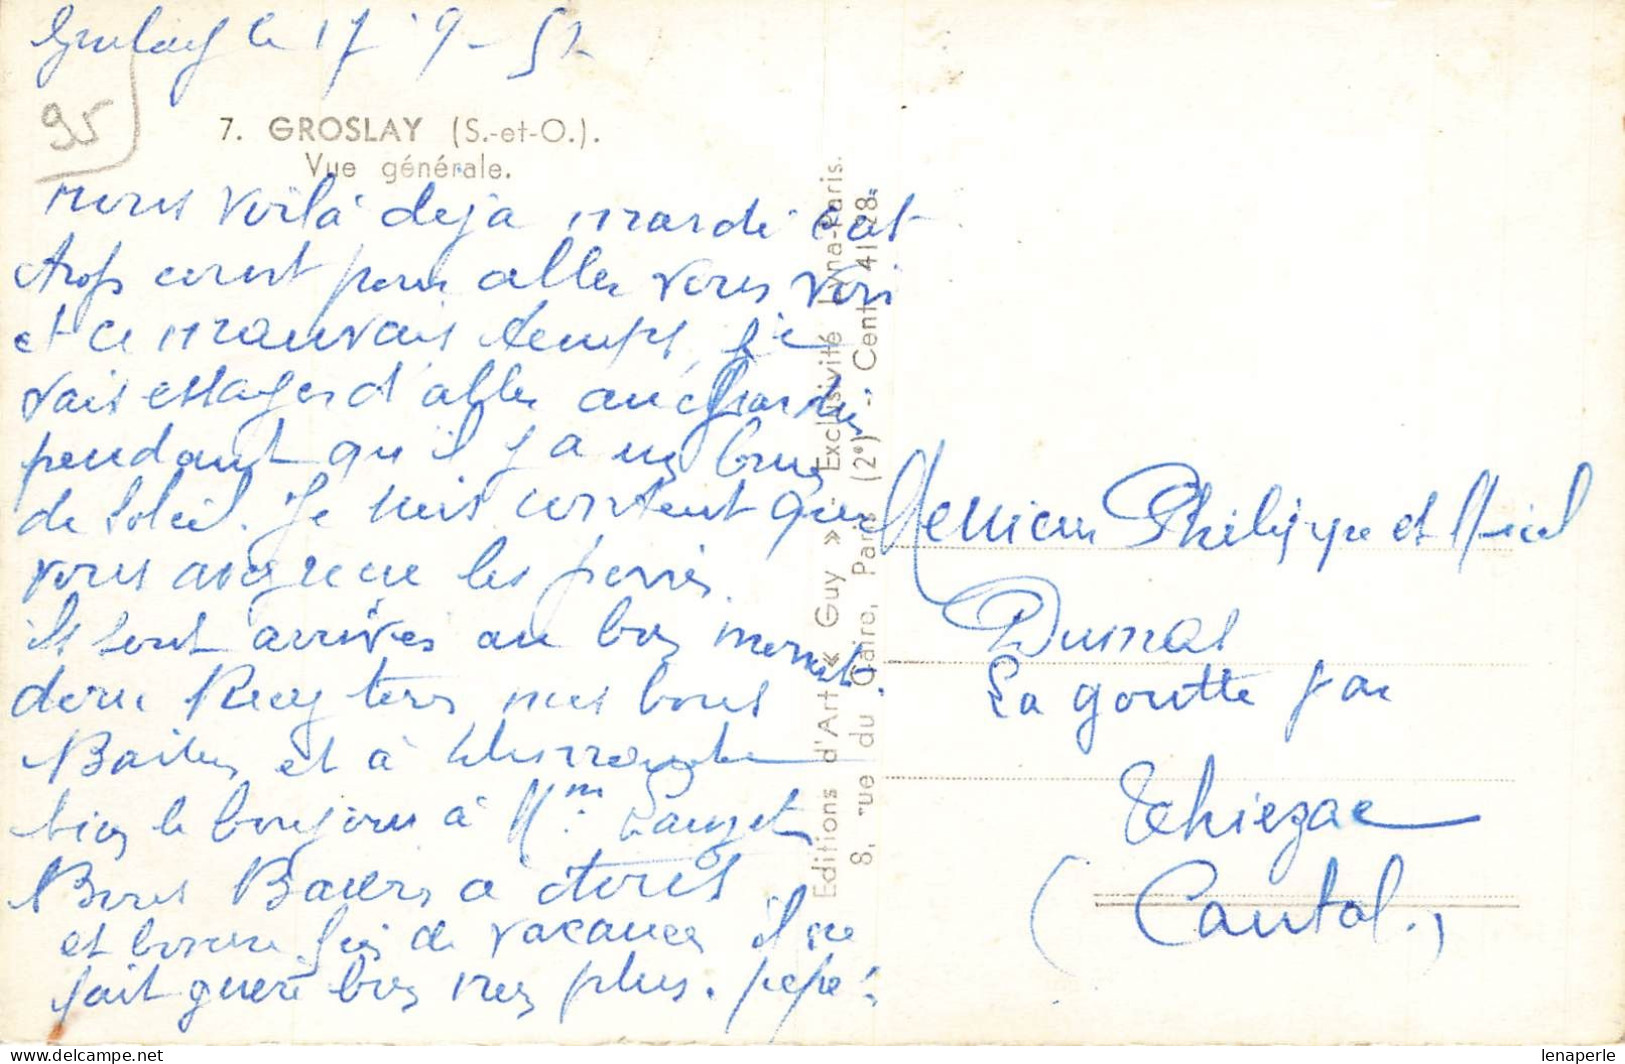 Groslay le 17-9-52
95
7. GROSLAY (S.-et-O.).
Vue générale.
Nous voilà deja mardi c'est
trop court pour aller vous voir
et ce mauvais temps je
vais essayer d'aller au Jardin
pendant qu'il y a un bon
de soleil. Je suis content que
vous les
ils sont arrivés au bon moment.
donc Recevez tous mes bons
Baisers et à
bien le bonjour à Mme Lauzet
Bons Baisers a tous
et bonne fin de vacances il ne
fait guere bon non plus. pépé
Editions d'Art « Guy » - Exclusivité Lyna-Paris.
8, rue du Caire, Paris (2e) -- Cent. 41-28.
Messieurs Philippe et
Dumas
La goutte par
Thiezac
(Cantal.)
lenaperle